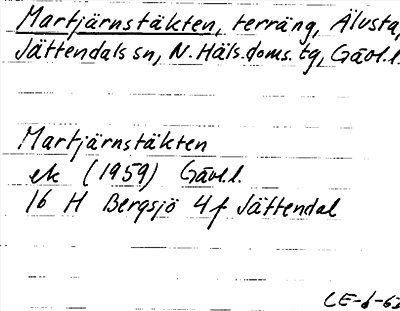 Martjärnstäkten, terräng, Älvsta,
Jättendals sn, N. Häls. doms. tg, Gävl. l.
Martjärnstäkten
ek (1959) Gävl. l.
16 H Bergsjö 4f Jättendal